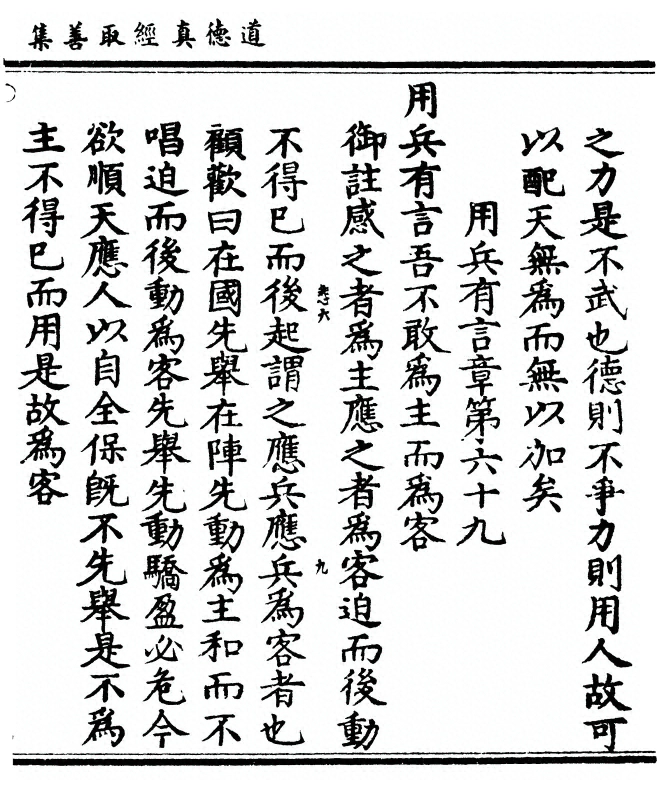 道德真經取善集
之力是不武也德則不爭力則用人故可
以配天無為而無以加矣
用兵有言章第六十九
用兵有言吾不敢為主而為客
御註感之者為主應之者為客迫而後動
九
不得已而後起謂之應兵應兵為客者也
顧歡曰在國先舉在陣先動為主和而不
唱迫而後動為客先舉先動驕盈必危今
欲順天應人以自全保既不先舉是不為
主不得已而用是故為客